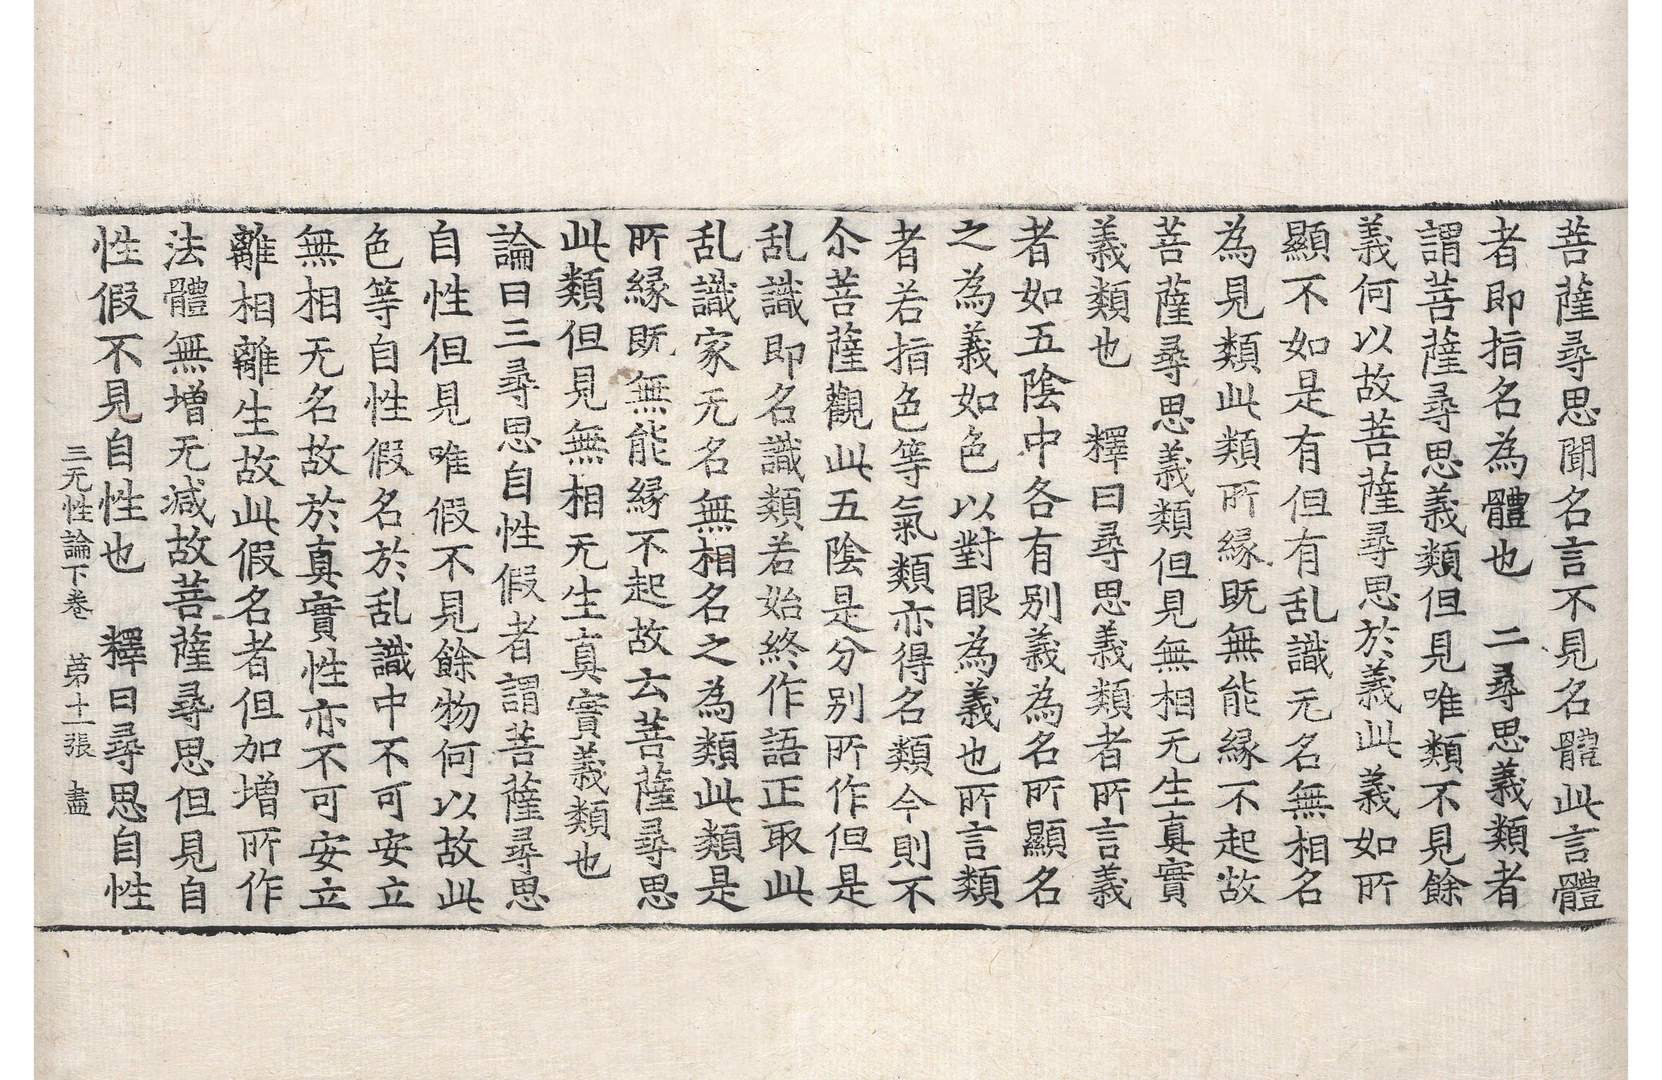 菩薩尋思聞名言不見名體此言體
者即指名為體也　二尋思義類者
謂菩薩尋思義類但見唯類不見餘
義何以故菩薩尋思於義此義如所
顯不如是有但有乱識无名無相名
為見類此類所緣既無能緣不起故
菩薩尋思義類但見無相无生真實
義類也　釋曰尋思義類者所言義
者如五陰中各有别義為名所顯名
之為義如色以對眼為義也所言類
者若指色等氣類亦得名類今則不
尒菩薩觀此五陰是分别所作但是
乱識即名識類若始終作語正取此
乱識家无名無相名之為類此類是
所緣既無能緣不起故云菩薩尋思
此類但見無相无生真實義類也
論曰三尋思自性假者謂菩薩尋思
自性但見唯假不見餘物何以故此
色等自性假名於乱識中不可安立
無相无名故於真實性亦不可安立
離相離生故此假名者但加增所作
法體無增无減故菩薩尋思但見自
性假不見自性也　釋曰尋思自性
三无性論下卷　第十一張　盡